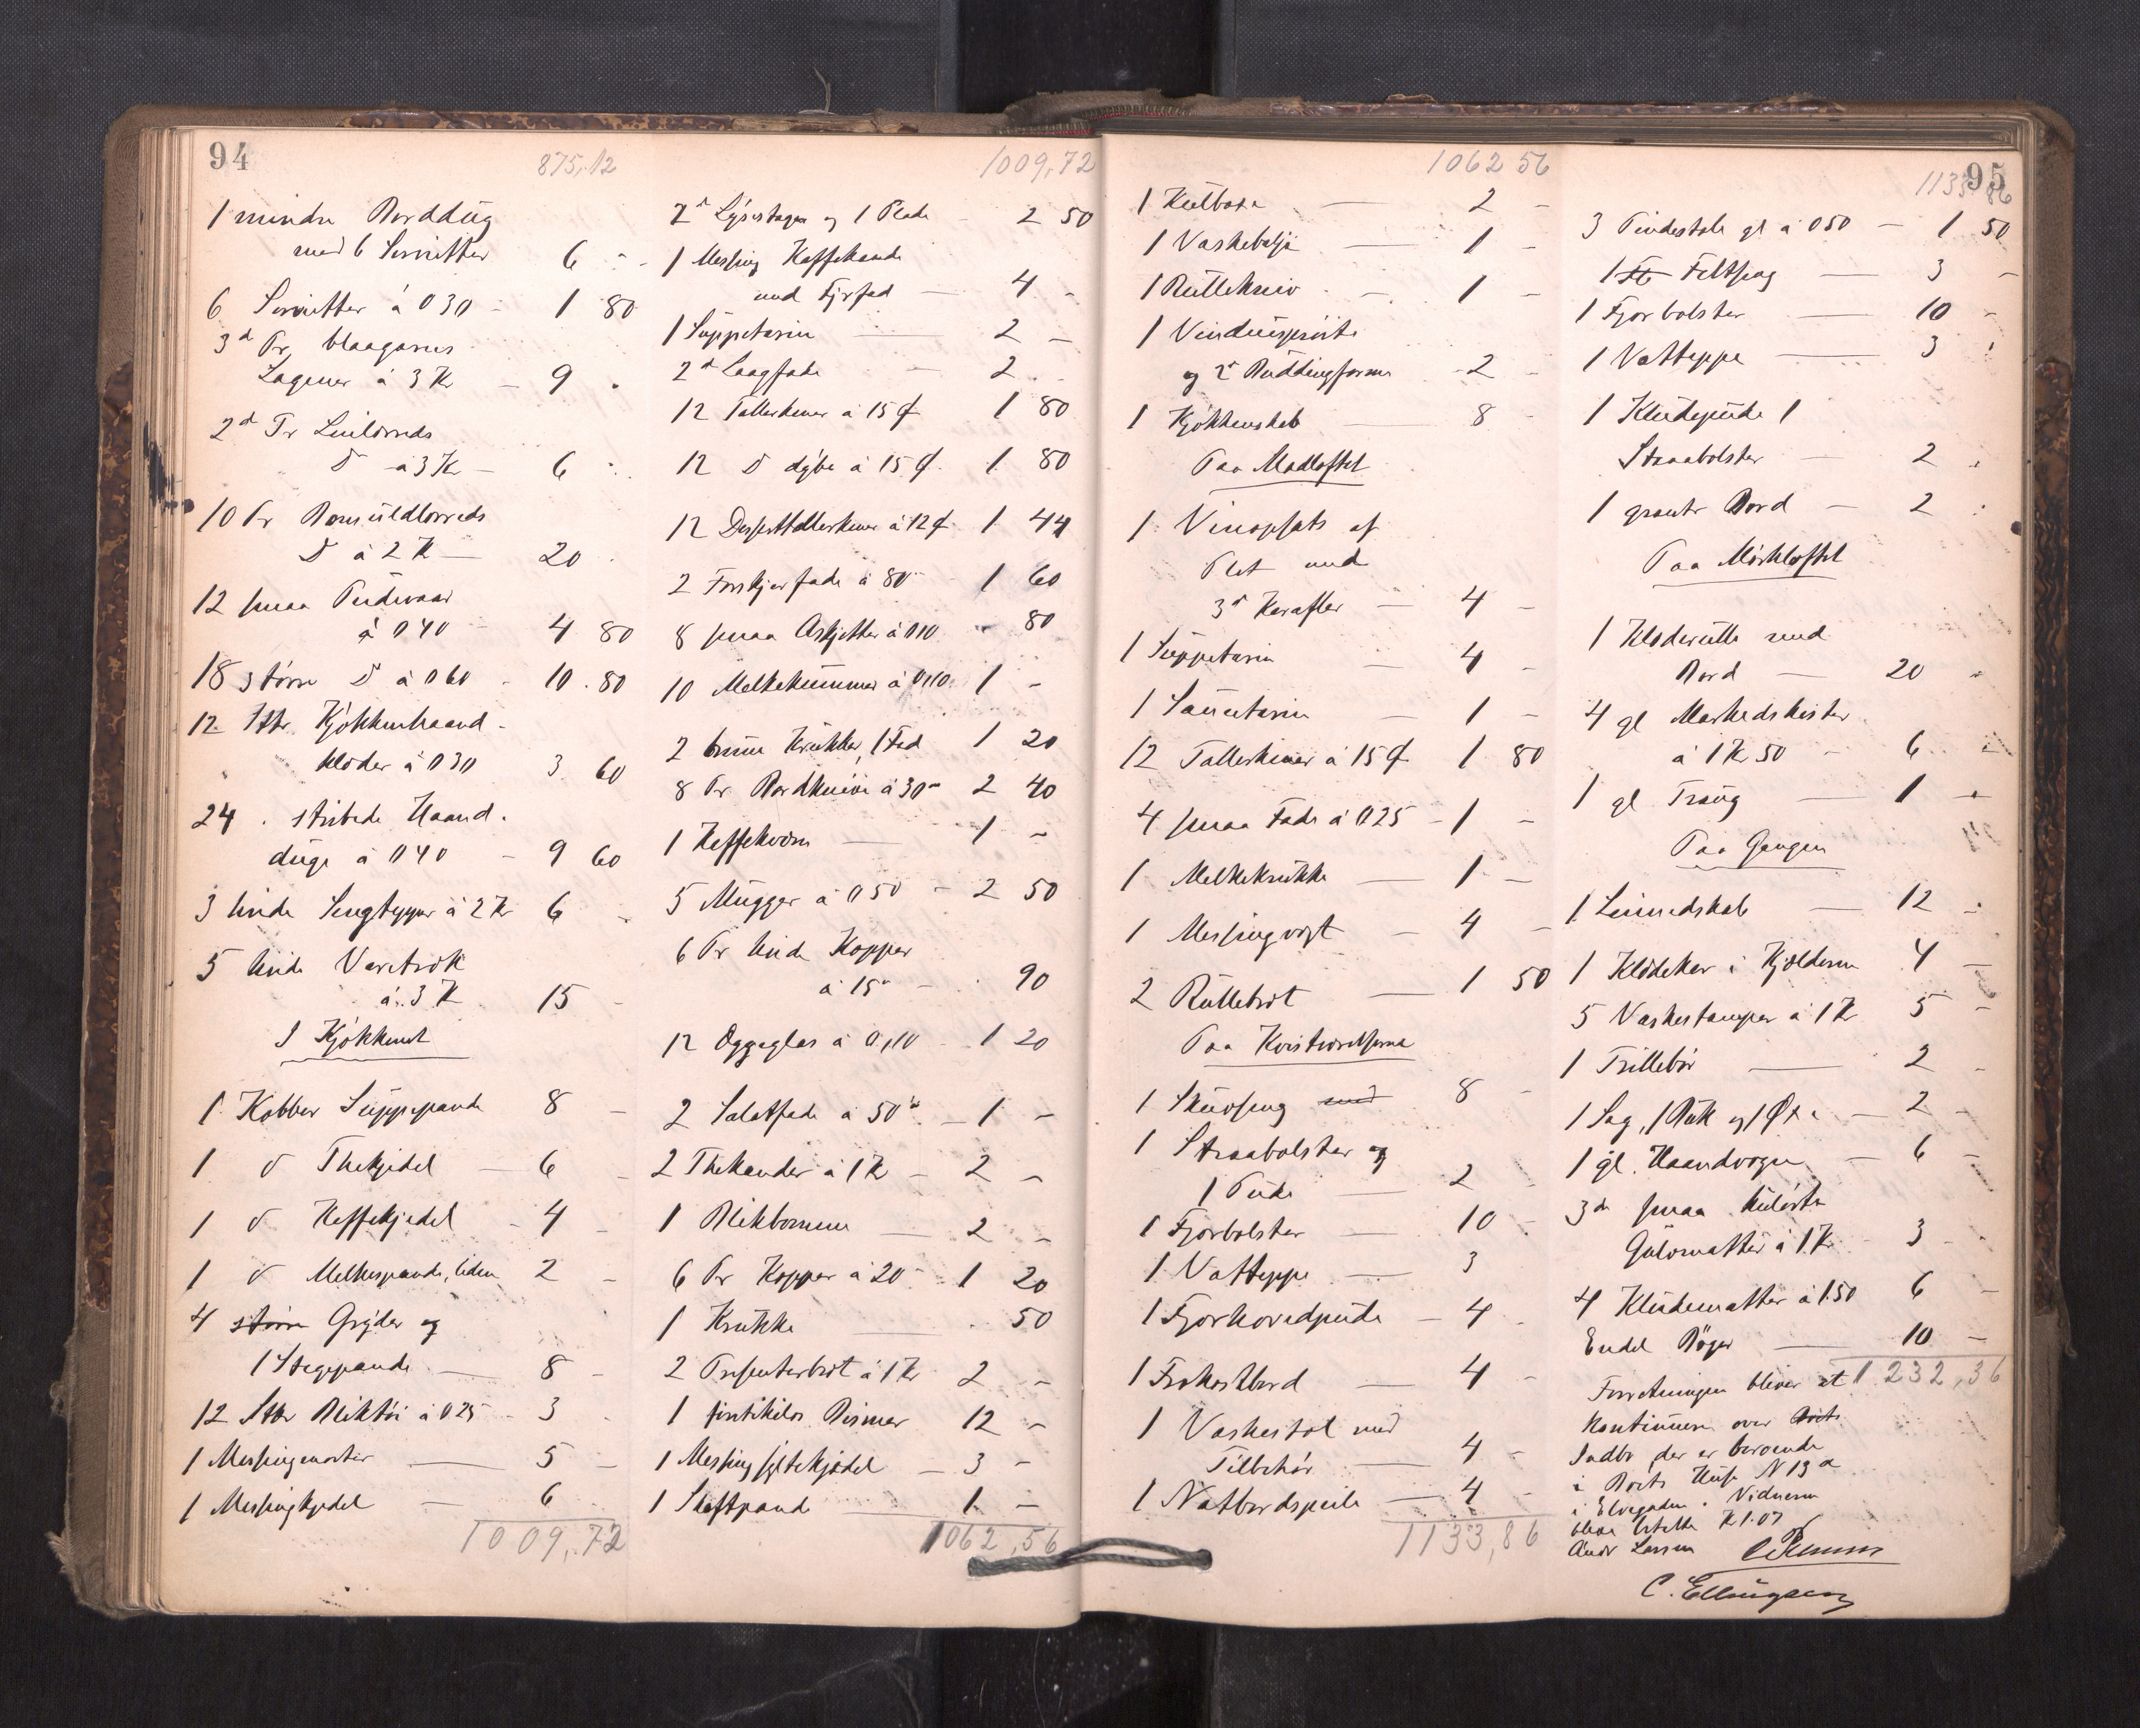 94
875,12
1 mindre Borddug
med 6 Servietter 6 -
6 Servietter á 0 30 - 1 80
3 d Pr blaagarns
Lagener á 3 Kr - 9 -
2 d Pr Linlerreds
D á 3 Kr - 6 -
10 Pr Bomuldlerreds
D á 2 Kr - 20 -
12 smaa Pudevaar
á 0 40 - 4 80
18 større D á 0 60 - 10 80
12 Stkr Kjøkkenhaand-
klæder á 0 30 3 60
24 stribede Haand-
duge á 0 40 - 9 60
3 hvide Sengtepper á 2 Kr 6 -
5 hvide Varetræk
á 3 Kr 15 -
I Kjøkkenet
1 Kobber Suppepande 8 -
1 d Thekjedel - 6 -
1 d Kaffekjedel - 4 -
1 d Melkespande, liden 2 -
4 større Gryder og
1 Stegepande - 8 -
12 Stkr Bliktøi á 0 25 - 3 -
1 Messingmorter - 5 -
1 Messingkjedel - 6 -
1009,72
1009,72
2 d Lysestager og 1 Plade 2 50
1 Messing Kaffekande
med Fyrfad - 4 -
1 Suppeterrin - 2 -
2 d Laagfade - 2 -
12 Tallerkener á 15 Ø 1 80
12 D dybe á 15 Ø 1 80
12 Desserttallerkener á 12 Ø 1 44
2 Forskjærfade á 80 - 1 60
8 smaa Asjetter á 0 10 - 80
10 Melkekummer á 0,10 1 -
2 brune Krukker, 1 Fad 1 20
8 Pr Bordknive á 30 - 2 40
1 Kaffekværn - 1 -
5 Mugger á 0 50 - 2 50
6 Pr hvide Kopper
á 15 - 90
12 Eggeglas á 0,10 - 1 20
2 Salatfade á 50 - 1 -
2 Thekander á 1 Kr - 2 -
1 Blikbomme - 2 -
6 Pr Kopper á 20 - 1 20
1 Krukke - 50
2 Presenterbræt á 1 Kr 2 -
1 Bismer 12 -
1 Messing syltekjedel - 3 -
1 Skaftpande - 1 -
1062,56
1062 56
1 Kulboxe - 2 -
1 Vaskebalje - 1 -
1 Bullekniv - 1 -
1 Vinduesprøite
og 2 d Puddingforme - 2 -
1 Kjøkkenskab - 8 -
Paa Madloftet
1 Vinopsats af
Plet med
3 d Karafler - 4 -
1 Suppeterrin - 4 -
1 Sauceterrin - 1 -
12 Tallerkener á 15 Ø 1 80
4 smaa Fade á 0 25 - 1 -
1 Melkekrukke - 1 -
1 Messingvægt - 4 -
2 Rullebræt - 1 50
Paa Kvistværelserne
1 Skuvseng med 8 -
1 Straabolster og
1 Pude - 2 -
1 Fjærbolster - 10 -
1 Vatteppe - 3
1 Fjærhovedpude - 4 -
1 Frokostbord - 4 -
1 Vaskestol med
Tilbehør - 4 -
1 Natbordspeile - 4 -
1133,86
95
1133,86
3 Pindestole gl á 0 50 - 1 50
1 St Feltseng - 3 -
1 Fjærbolster - 10 -
1 Vatteppe - 3 -
1 Kludepude 1
Straabolster - 2 -
1 granit Bord - 2 -
Paa Mørkloftet
1 Klæderulle med
Bord - 20 -
4 gl Markedskister
á 1 Kr 50 - 6 -
1 gl Traug - 1 -
Paa Gangen
1 Linnedskab - 12 -
1 Klædekar i Kjælderen 4 -
5 Vaskestamper á 1 Kr 5 -
1 Trillebør - 2 -
1 Sag, 1 Buk og 1 Øxe - 2 -
1 gl. Haandvogn - 6 -
3 d smaa kulørte
Gulvmatter á 1 Kr - 3 -
4 Kludematter á 1.50 6 -
Endel Bøger - 10 -
1232,36
Forretningen bliver at
kontinuere over Boets
Indbo der er beroende
i Boets Hus N 13 a
i Elvegaden. Vidnerne
bleve betalte K 1.07
Andr Larsen
C. Ellingsen